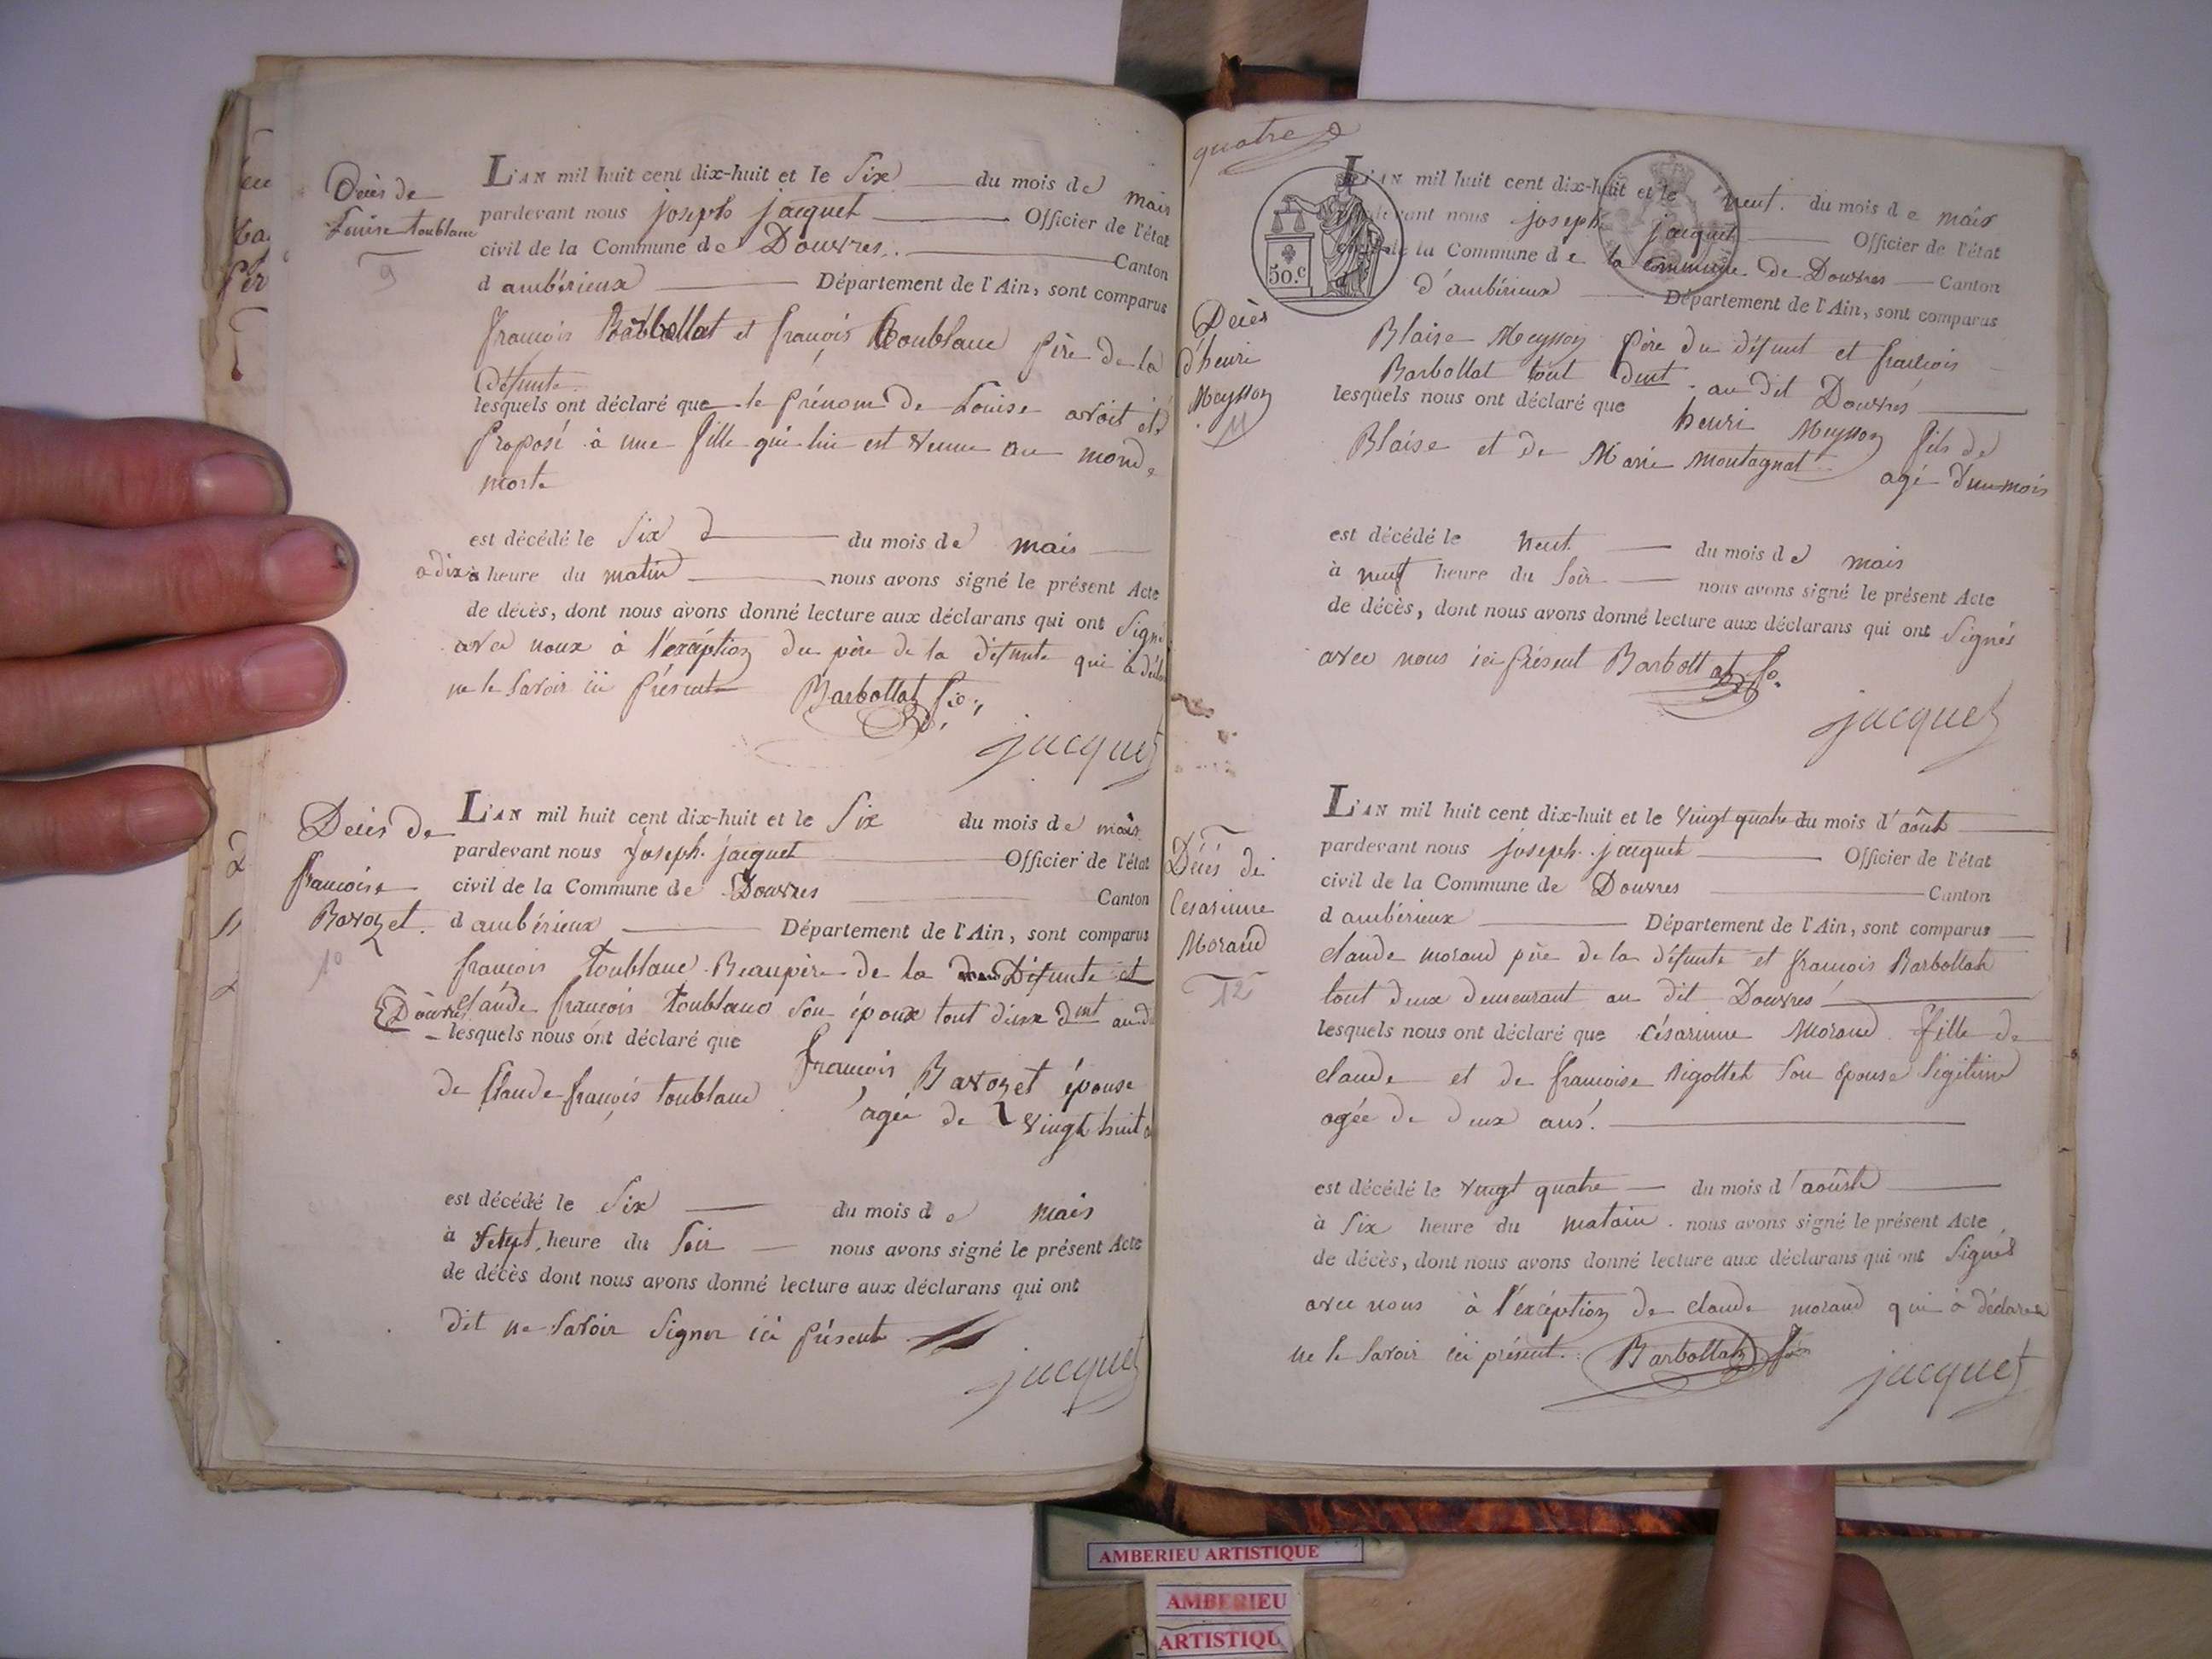 Décès de
Louise toublanc
9
L'AN mil huit cent dix-huit et le Six du mois de mais
pardevant nous joseph jacquet Officier de l'état
civil de la Commune de Douvres. Canton
d ambérieux Département de l'Ain, sont comparus
françois Barbollat et françois toublanc père de la
défunte
lesquels ont déclaré que le prénom de Louise avoit été
proposé à une fille qui lui est venue au monde
morte
est décédé le Six du mois de mais
a dix à heure du matin nous avons signé le présent Acte
de décès, dont nous avons donné lecture aux déclarans qui ont signé
avec noux à l'exéption du père de la défunte qui à
ne le savoir ici présent Barbollat fo.
jacquet
Décès de
francoise
Bavozet.
10
L'AN mil huit cent dix-huit et le Six du mois de mais
pardevant nous joseph jacquet Officier de l'état
civil de la Commune de Douvres Canton
d ambérieux Département de l'Ain, sont comparus
francois toublanc Beaupère de la Défunte et
Claude françois toublanc son époux tout deux dmt audt
Douvres
lesquels nous ont déclaré que
francois Bavozet épouse
de Claude françois toublanc agée de vingt huit
est décédé le Six du mois de mais
à Sept heure du Soir nous avons signé le présent Acte
de décès dont nous avons donné lecture aux déclarans qui ont
dit ne savoir signer ici présent
jacquet
quatre
50.c
Décès
d'henri
Meysson
11
L'AN mil huit cent dix-huit et le neuf. du mois de mais
pardevant nous joseph jacquet Officier de l'état
civil de la Commune de la commune de Douvres Canton
d'ambérieux Département de l'Ain, sont comparus
Blaise Meysson père du défunt et francois
Barbollat tout dmt. au dit Douvres
lesquels nous ont déclaré que henri Meysson fils de
Blaise et de Marie Montagnat agé d'un mois
est décédé le neuf du mois de mais
à neuf heure du Soir nous avons signé le présent Acte
de décès, dont nous avons donné lecture aux déclarans qui ont Signés
avec nous ici présent Barbollat fo.
jacquet
Décès de
Cesarinne
Morand
12
L'AN mil huit cent dix-huit et le vingt quatre du mois d'août
pardevant nous joseph jacquet Officier de l'état
civil de la Commune de Douvres Canton
d ambérieux Département de l'Ain, sont comparus
claude morand père de la défunte et francois Barbollat
tout deux demeurant au dit Douvres
lesquels nous ont déclaré que césarinne Morand fille de
claude et de francoise Rigottet Son épouse légitime
agée de deux ans.
est décédé le vingt quatre du mois d'août
à Six heure du matain. nous avons signé le présent Acte
de décès, dont nous avons donné lecture aux déclarans qui ont Signés
avec nous à l'exéption de claude morand qui à déclaré
ne le savoir ici présent. Barbollat fo.
jacquet
AMBERIEU ARTISTIQUE
AMBERIEU
ARTISTIQU